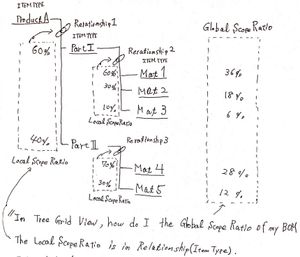 ITEM TYPE
Product A
Relationship1
ITEM TYPE
Global Scope Ratio
60%
Part I
Relationship 2
ITEM TYPE
60%
Mat 1
36%
30%
Mat 2
18%
10%
Mat 3
6%
Local Scope Ratio
40%
Part II
Relationship3
Local Scope Ratio
70%
Mat 4
28%
30%
Mat 5
12%
Local Scope Ratio
"In Tree Grid View, how do I the Global Scope Ratio of my BOM
The Local Scope Ratio is in Relationship(Item Type).